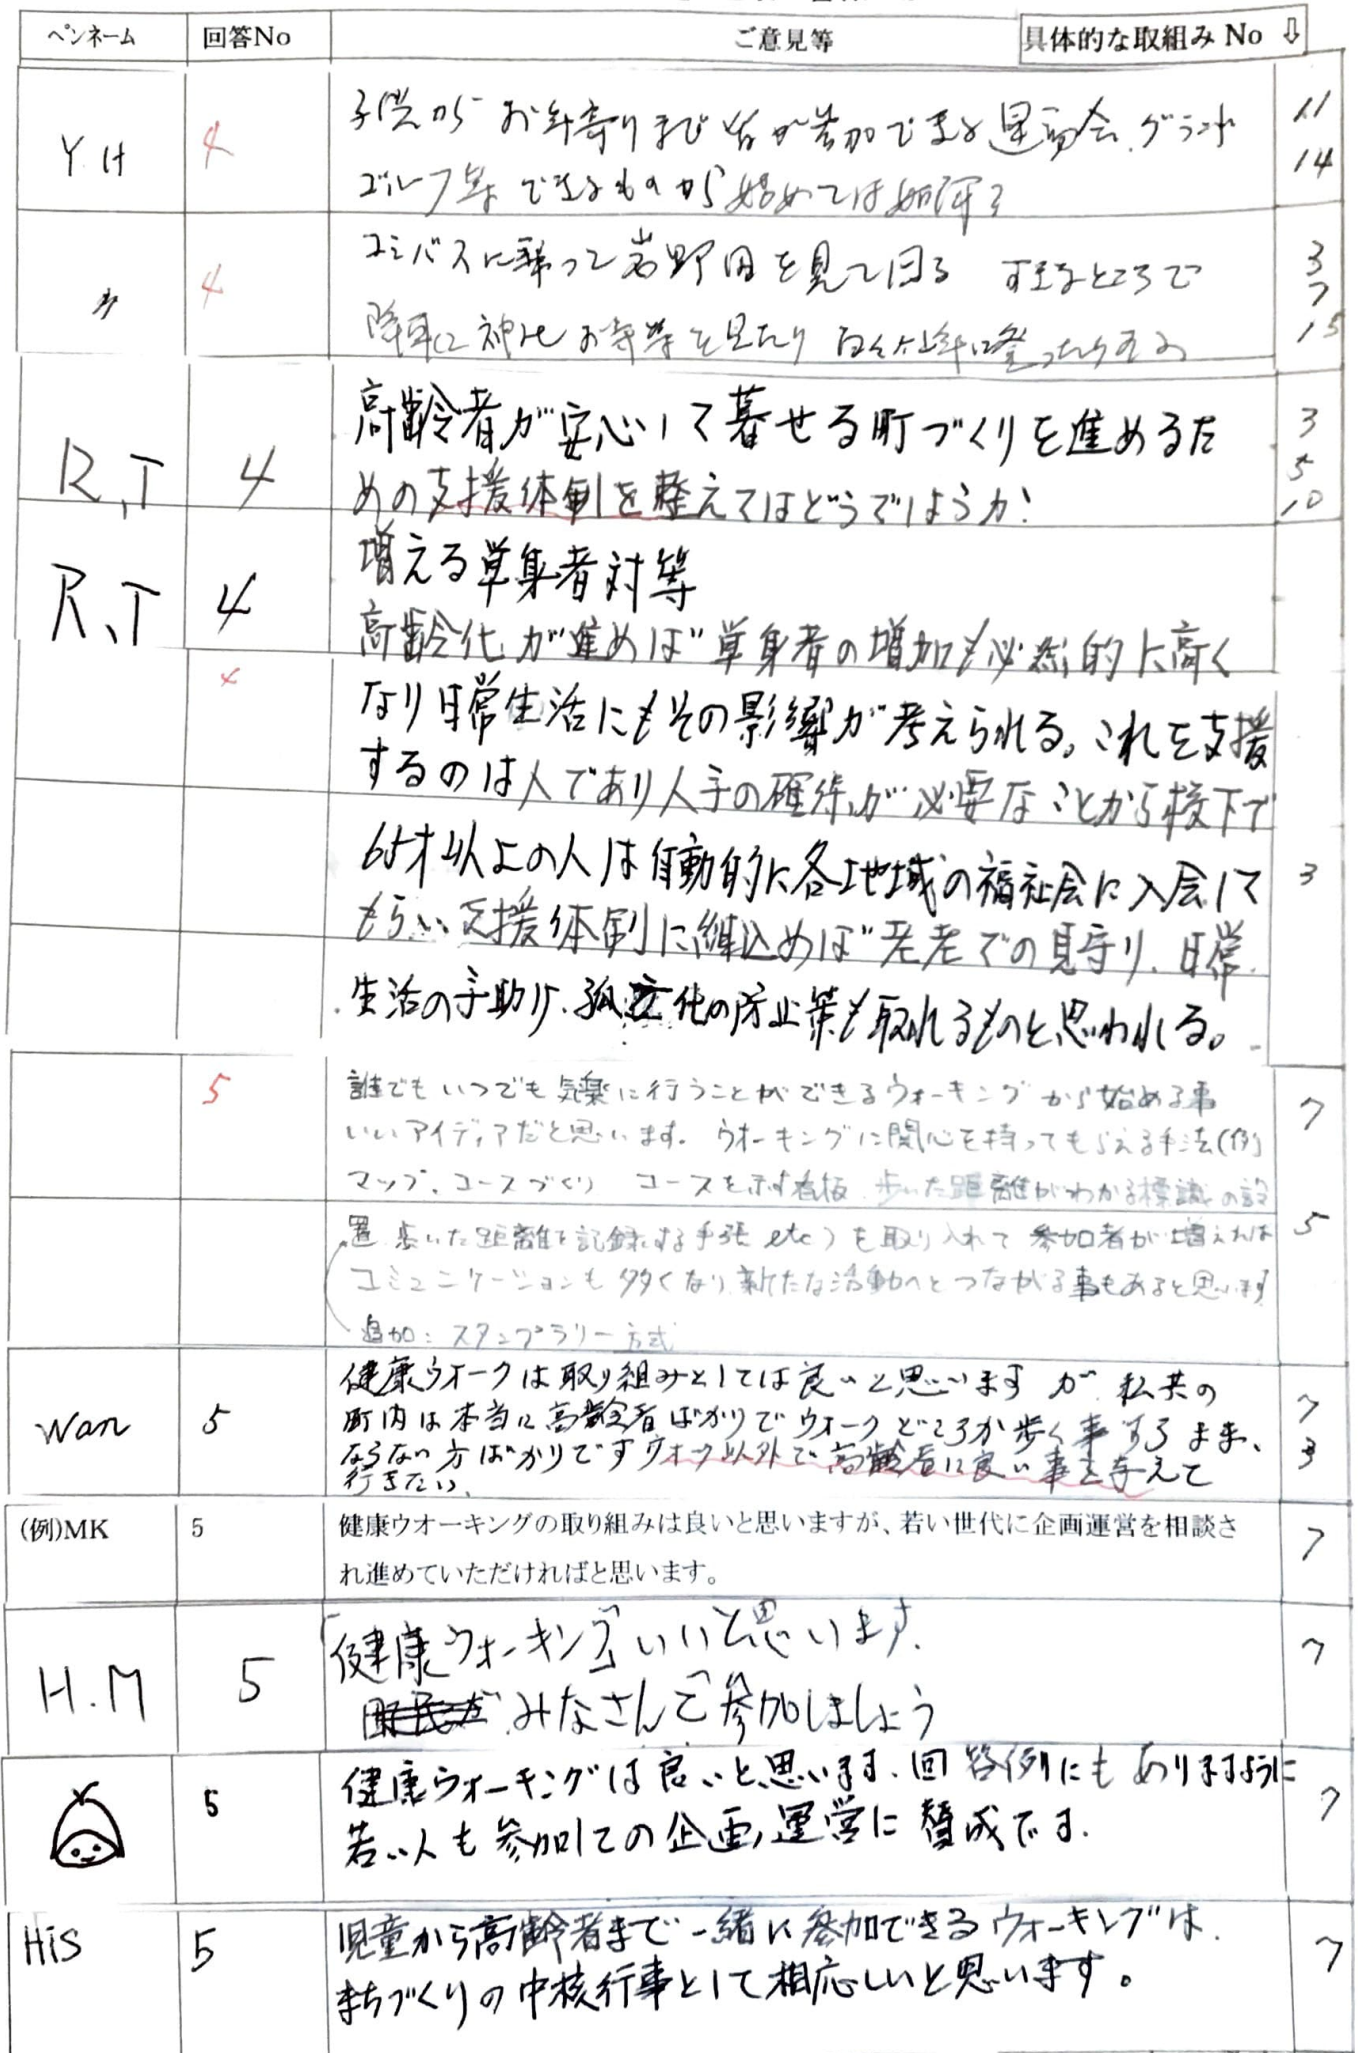 ペンネーム 回答No ご意見等 具体的な取組み No ⇩
Y.H 4 子供からお年寄りまで皆が参加できる運動会、グランド 11
ゴルフ等できるものから始めては如何? 14
〃 4 コミバスに乗って岩野田を見て回る すきなところで 3 7
降車し神社お寺等を見たり 登ったりする 15
高齢者が安心して暮せる町づくりを進めるた 3
R.T 4 めの支援体制を整えてはどうでしょうか! 5 10
増える単身者対等
R.T 4 高齢化が進めば単身者の増加も必然的に高く
4 なり日常生活にもその影響が考えられる。これを支援
するのは人であり人手の確保が必要なことから校下で
65才以上の人は自動的に各地域の福祉会に入会して 3
もらい支援体制に組込めば老老での見守り、日常
生活の手助け、孤立化の防止策も取れるものと思われる。
5 誰でもいつでも気楽に行うことができるウォーキングから始める事 7
いいアイディアだと思います。ウオーキングに関心を持ってもらえる手法(例)
マップ、コースづくり コースを示す看板、歩いた距離がわかる標識の設
置 歩いた距離を記録する手張 etc)を取り入れて 参加者が増えれば 5
コミュニケーションも多くなり、新たな活動へとつながる事もあると思います
追加:スタンプラリー方式
健康ウオークは取り組みとしては良いと思いますが、私共の
Wan 5 町内は本当に高齢者ばかりでウォークどころか歩く事するまま、 7
ならない方ばかりですウォーク以外で高齢者に良い事を与えて 3
行きたい、
(例)MK 5 健康ウオーキングの取り組みは良いと思いますが、若い世代に企画運営を相談さ 7
れ進めていただければと思います。
「健康ウォーキング」いいと思います。 7
H.M 5 みなさんで参加しましょう
5 健康ウォーキングは良いと思います、回答例にもありますように 7
若い人も参加しての企画、運営に賛成です。
His 5 児童から高齢者まで一緒に参加できるウォーキングは、 7
まちづくりの中核行事として相応しいと思います。